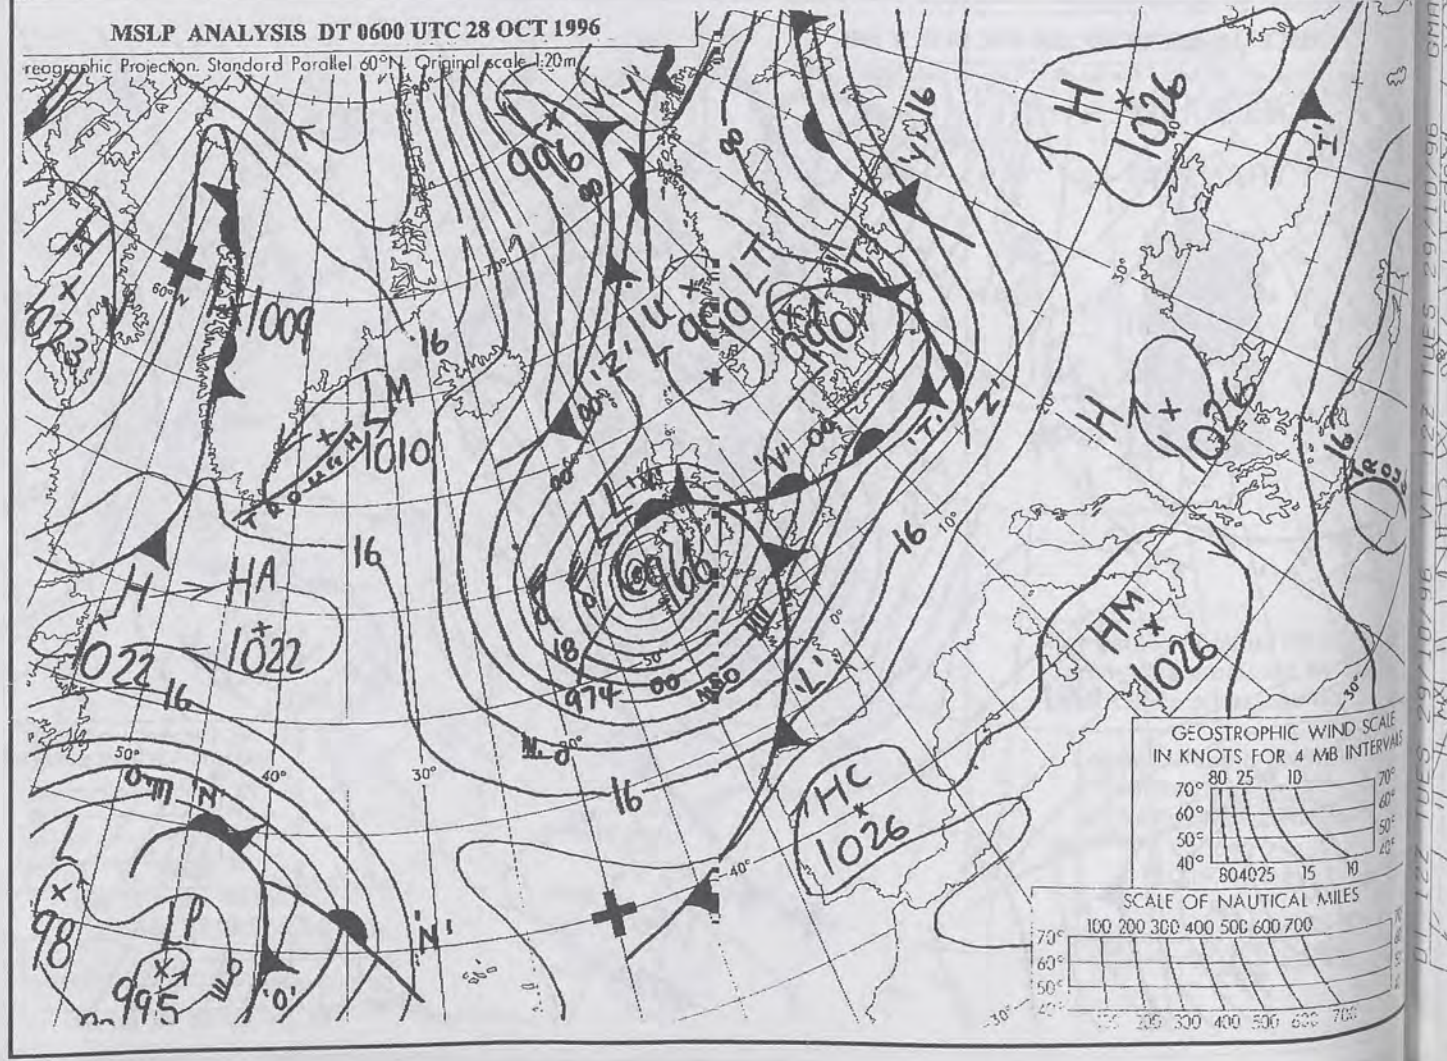 MSLP ANALYSIS DT 0600 UTC 28 OCT 1996
reographic Projection. Standard Parallel 60°N. Original scale 1:20m
H
1026
'I'
996
00
00
'Y'
16
H
60°N
1009
16
LM
1010
TROUGH
LU
LT
990
'Z'
00
00
70°
30°
20°
H
1026
16
TROUGH
'Z'
'T'
'V'
00
LL
966
16
10°
0°
H
HA
1022
1022
16
16
18
974
00
50°
'L'
HM
1026
30°
50°
40°
30°
20°
16
HC
1026
40°
'N'
L
98
LP
995
'O'
'N'
GEOSTROPHIC WIND SCALE
IN KNOTS FOR 4 MB INTERVALS
80 25 10
70° 70°
60° 60°
50° 50°
40° 40°
804025 15 10
SCALE OF NAUTICAL MILES
100 200 300 400 500 600 700
70°
60°
50°
40°
200 300 400 500 600 700
30°
DT 12Z TUES 29/10/96 VT 12Z TUES 29/10/96